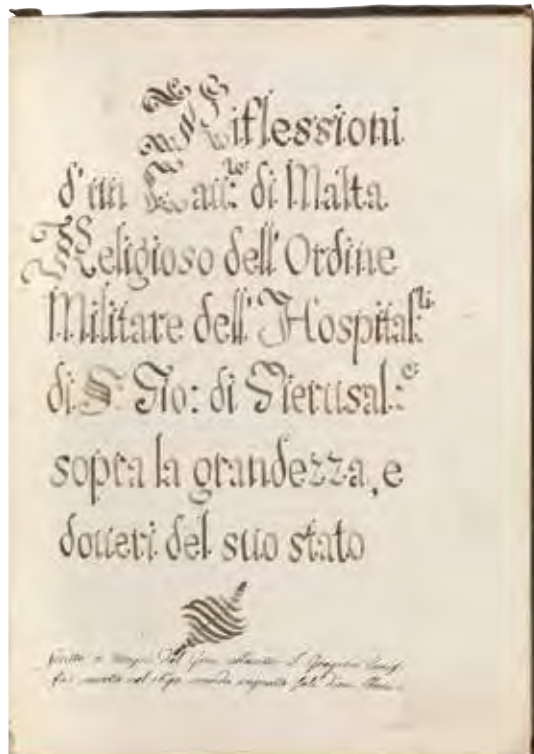 Riflessioni
d'un Cau:re di Malta
Religioso dell'Ordine
Militare dell'Hospital:li
di S. Gio: di Gierusal:e
sopra la grandezza, e
doueri del suo stato